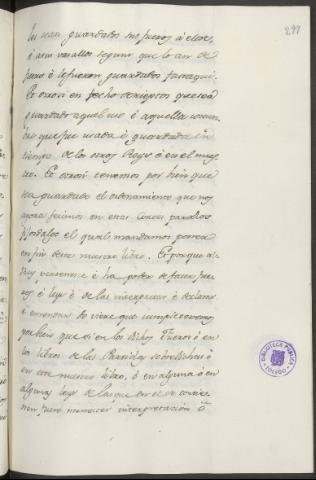 291
les sean guardados sus fueros á ellos,
é á sus vasallos segund que lo an de
fuero é les fueron guardados fasta aqui.
Et otrosi en fecho de rieptos que sea
guardado aquel uso é aquella costum
bre que fue usada é guardada en
tiempo de los otros Reyes é en el nues
tro. Et otrosi tenemos por bien que
sea guardado el ordenamiento que nos
agora fecimos en estas Cortes para los
fijosdalgo el qual mandamos poner
en fin deste nuestro libro. Et porque al
Rey pertenesce é ha poder de facer fue
ros é leyes é de las interpretar é declarar
é emendar do viere que cumple tenemos
por bien que si en los dichos fueros ó en
los libros de las Partidas sobredichas ó
en este nuestro libro, ó en alguna ó en
algunas leyes de las que en el se contie
nen fuere menester interpretacion ó
BIBLIOTECA PUBLICA
TOLEDO